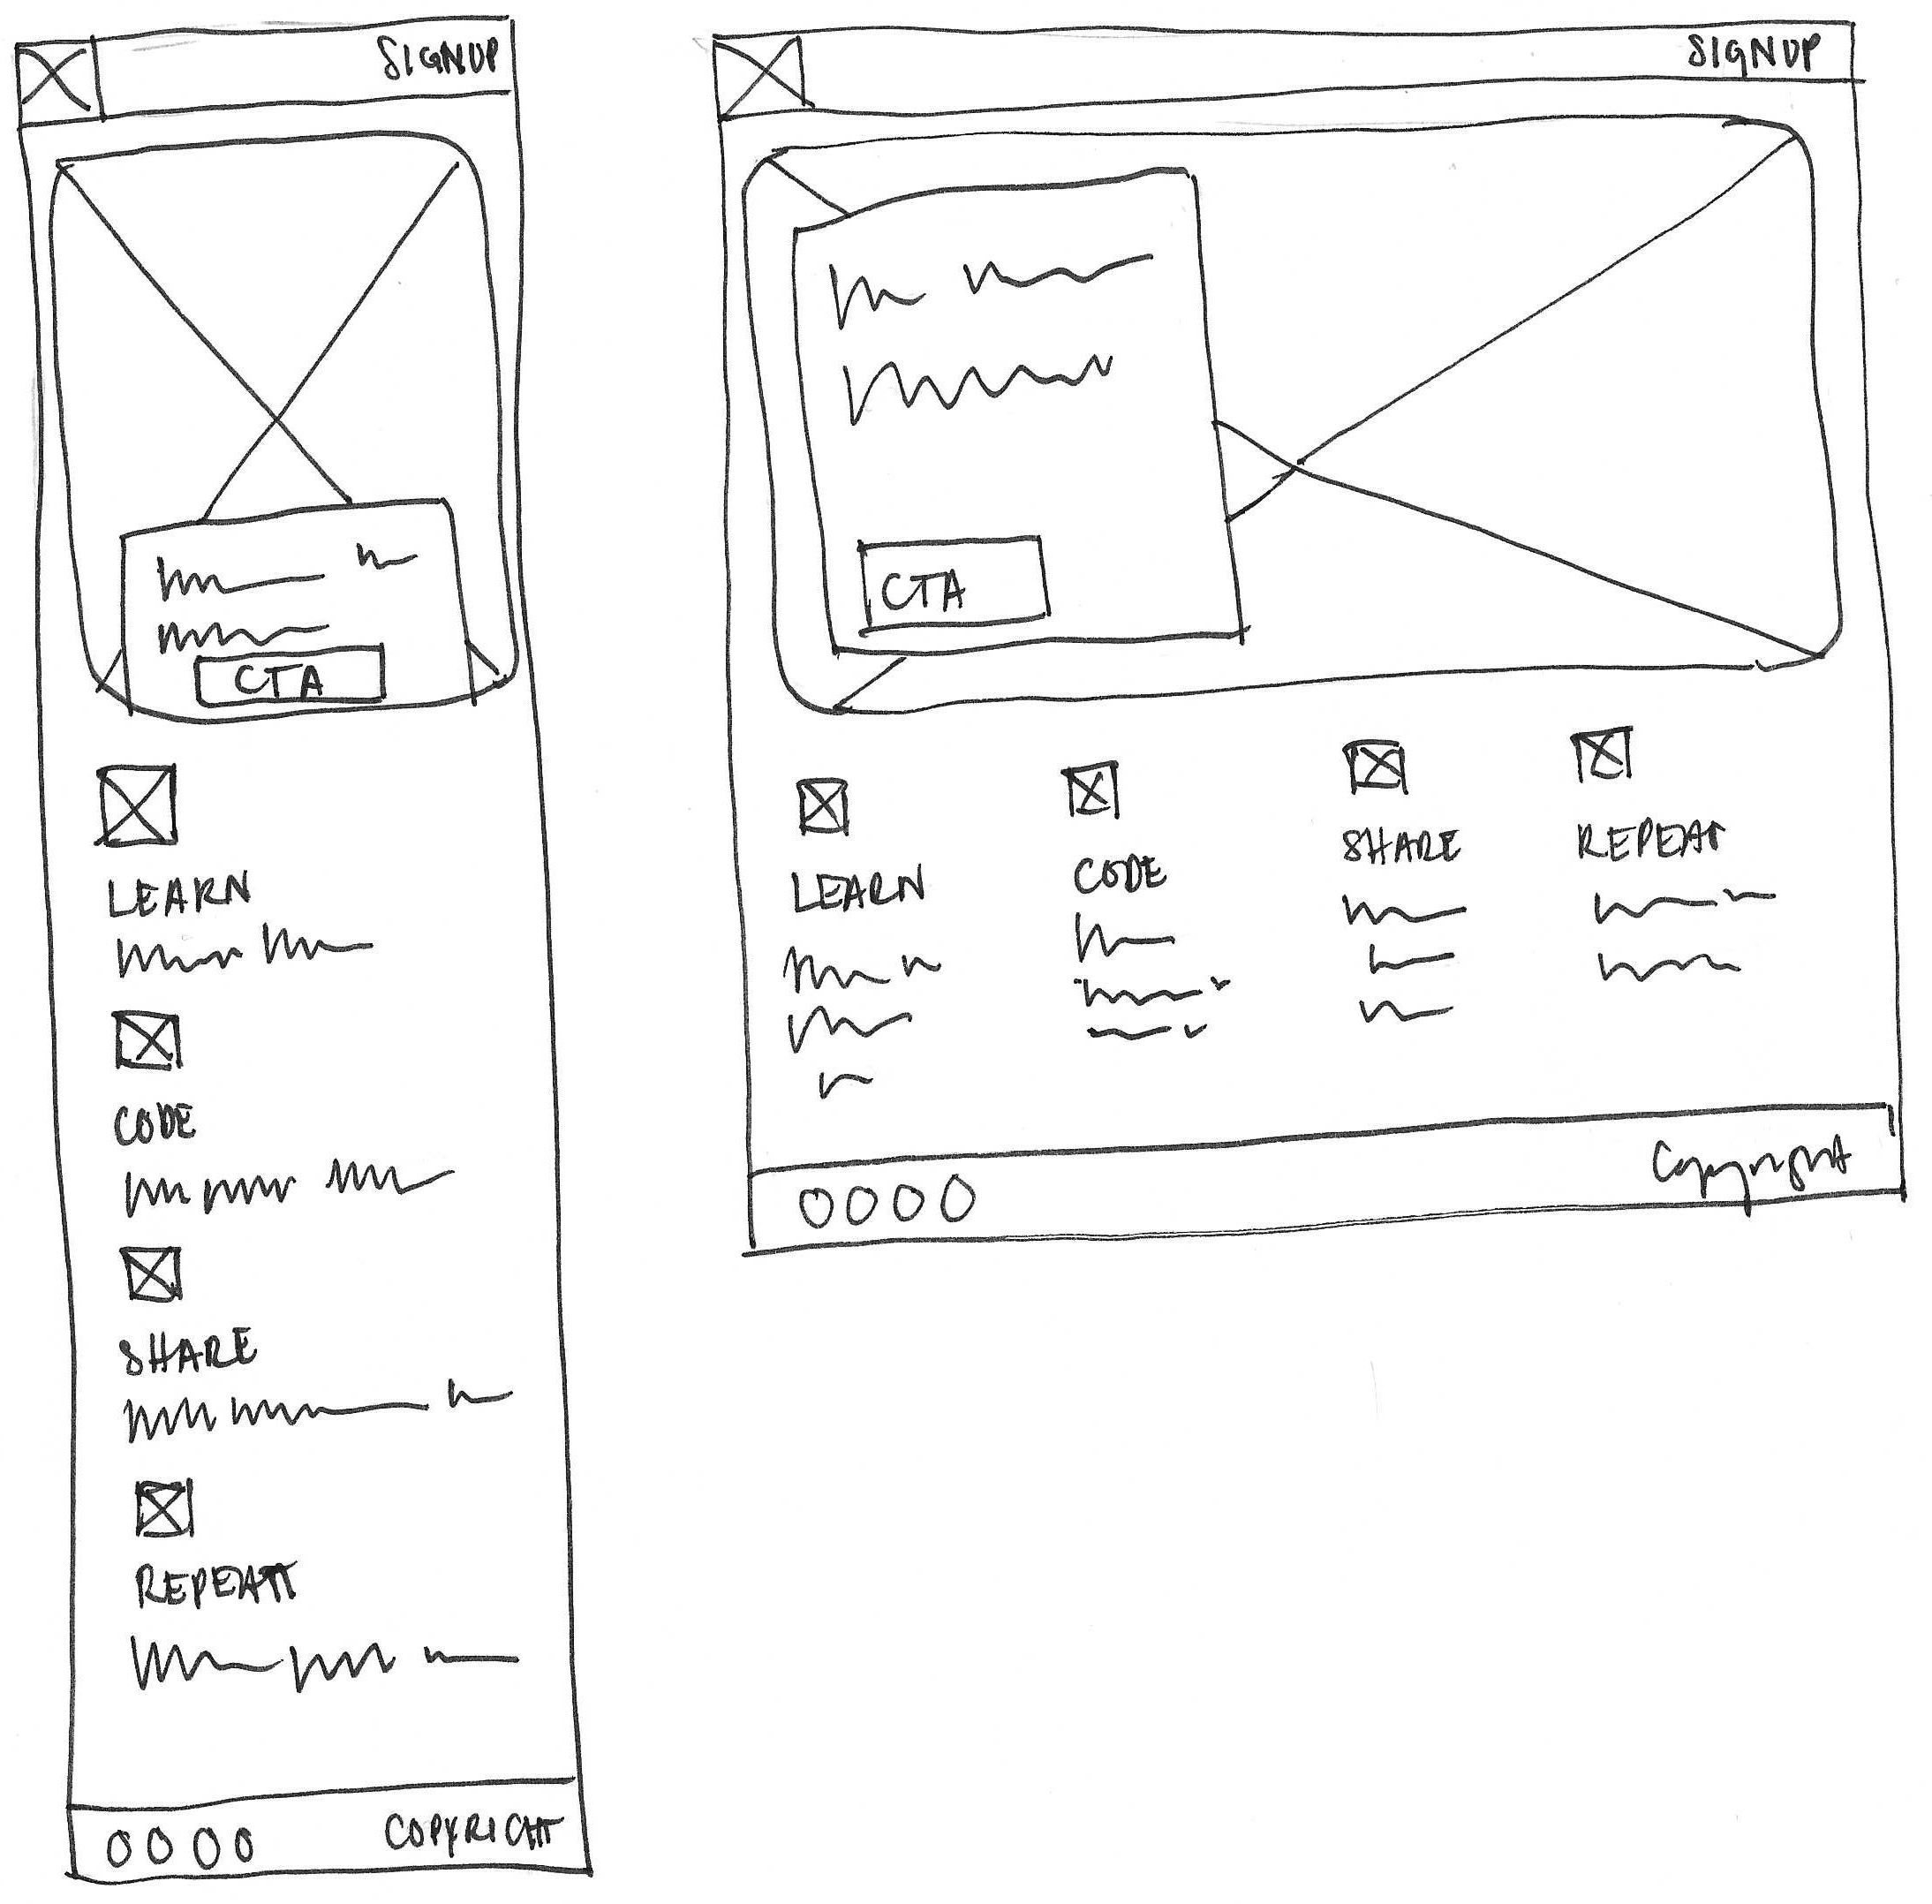 SIGNUP
CTA
LEARN
CODE
SHARE
REPEAT
COPYRIGHT
SIGNUP
CTA
LEARN CODE SHARE REPEAT
Copyright